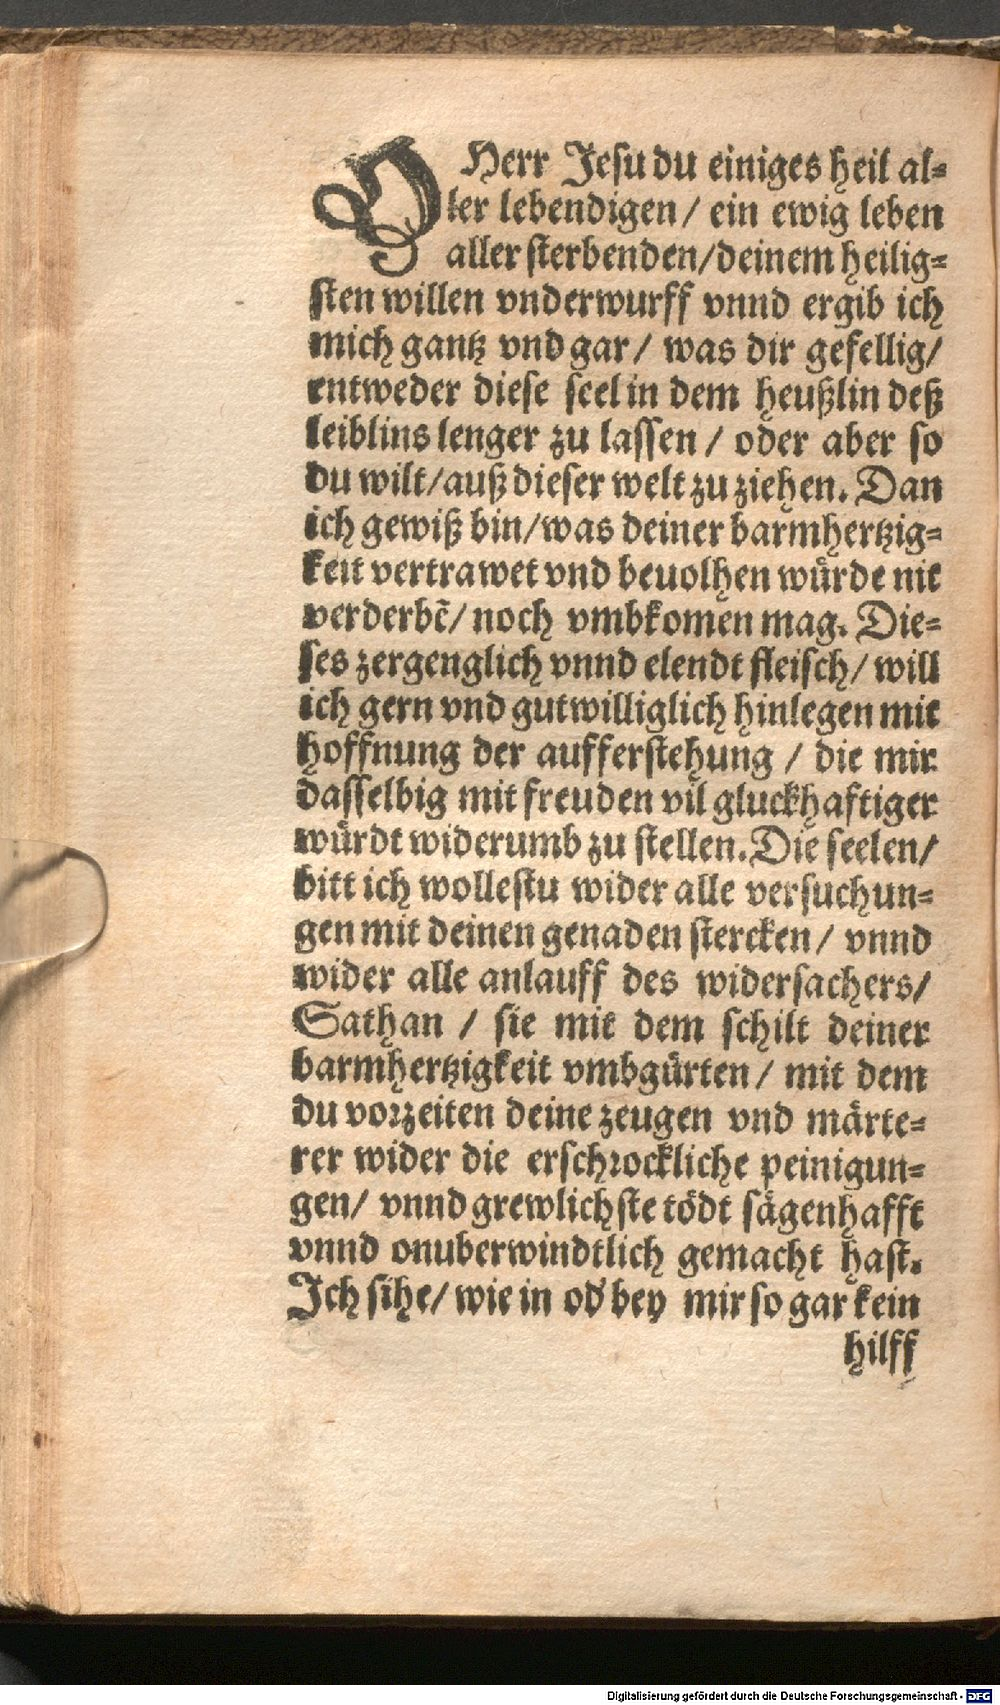 O Herr Jesu du einiges heil al=
ler lebendigen/ ein ewig leben
aller sterbenden/deinem heilig=
sten willen vnderwurff vnnd ergib ich
mich gantz vnd gar/ was dir gefellig/
entweder diese seel in dem heußlin deß
leiblins lenger zu lassen/ oder aber so
du wilt/auß dieser welt zu ziehen. Dan
ich gewiß bin/was deiner barmhertzig=
keit vertrawet vnd beuolhen würde nit
verderbē/ noch vmbkomen mag. Die=
ses zergenglich vnnd elendt fleisch/ will
ich gern vnd gutwilliglich hinlegen mit
hoffnung der aufferstehung / die mir
dasselbig mit freuden vil gluckhaftiger
würdt widerumb zu stellen. Die seelen/
bitt ich wollestu wider alle versuchun=
gen mit deinen genaden stercken/ vnnd
wider alle anlauff des widersachers/
Sathan / sie mit dem schilt deiner
barmhertzigkeit vmbgürten/ mit dem
du vorzeiten deine zeugen vnd märte=
rer wider die erschrockliche peinigun=
gen/ vnnd grewlichste tödt sägenhafft
vnnd onuberwindtlich gemacht hast.
Ich sihe/ wie in od' bey mir so gar kein
hilff
Digitalisierung gefördert durch die Deutsche Forschungsgemeinschaft - DFG